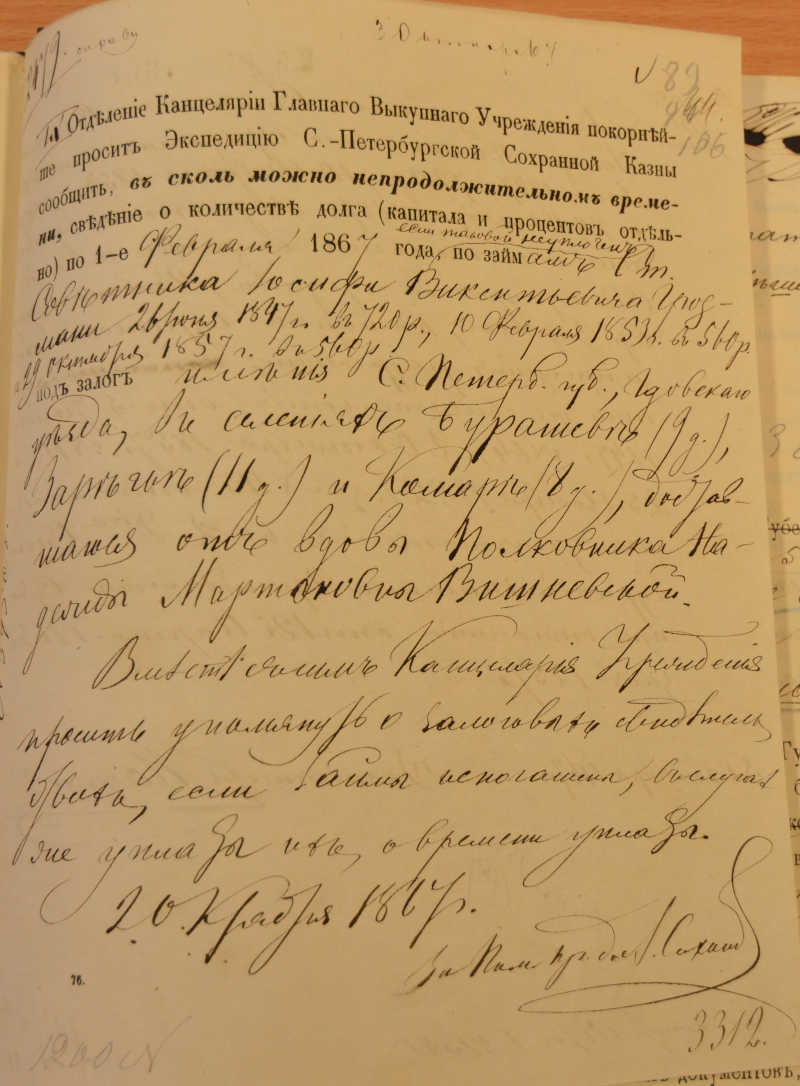 справу
3 Октября 67
83
166
1й Отдѣленіе Канцеляріи Главнаго Выкупнаго Учрежденія покорнѣй-
ше проситъ Экспедицію С.-Петербургской Сохранной Казны
сообщить, въ сколь можно непродолжительномъ време-
ни, свѣдѣніе о количествѣ долга (капитала и процентовъ отдѣль-
если таковой неуплоченъ
но) по 1-е Февраля 1867 года, по займамъ Ст.
Совѣтника Іосифа Викентьевича Грос-
мани 26 Іюня 1847 г. въ 720 р., 10 Февраля 1853 г. въ 560 р.
19 Октября 1857 г. въ 560 р.
подъ залогъ имѣнія С. Петерб. губ., Гдовскаго
уѣзда, въ селеніяхъ Бурашевѣ (9 д.),
(11 д.) и Комарѣ (8 д.), доб
отъ вдовы Полковника На-
дежды Мартыновны Вишневской.
Вмѣстѣ съ симъ Канцелярія Учрежденія
проситъ упомянуть о залоговыхъ свидѣтель
ствахъ, если займы непогашены, въ случаѣ
же уплаты ихъ, о времени уплаты.
20 1867 г.
За Пом.
76.
3312.
1200
документовъ,